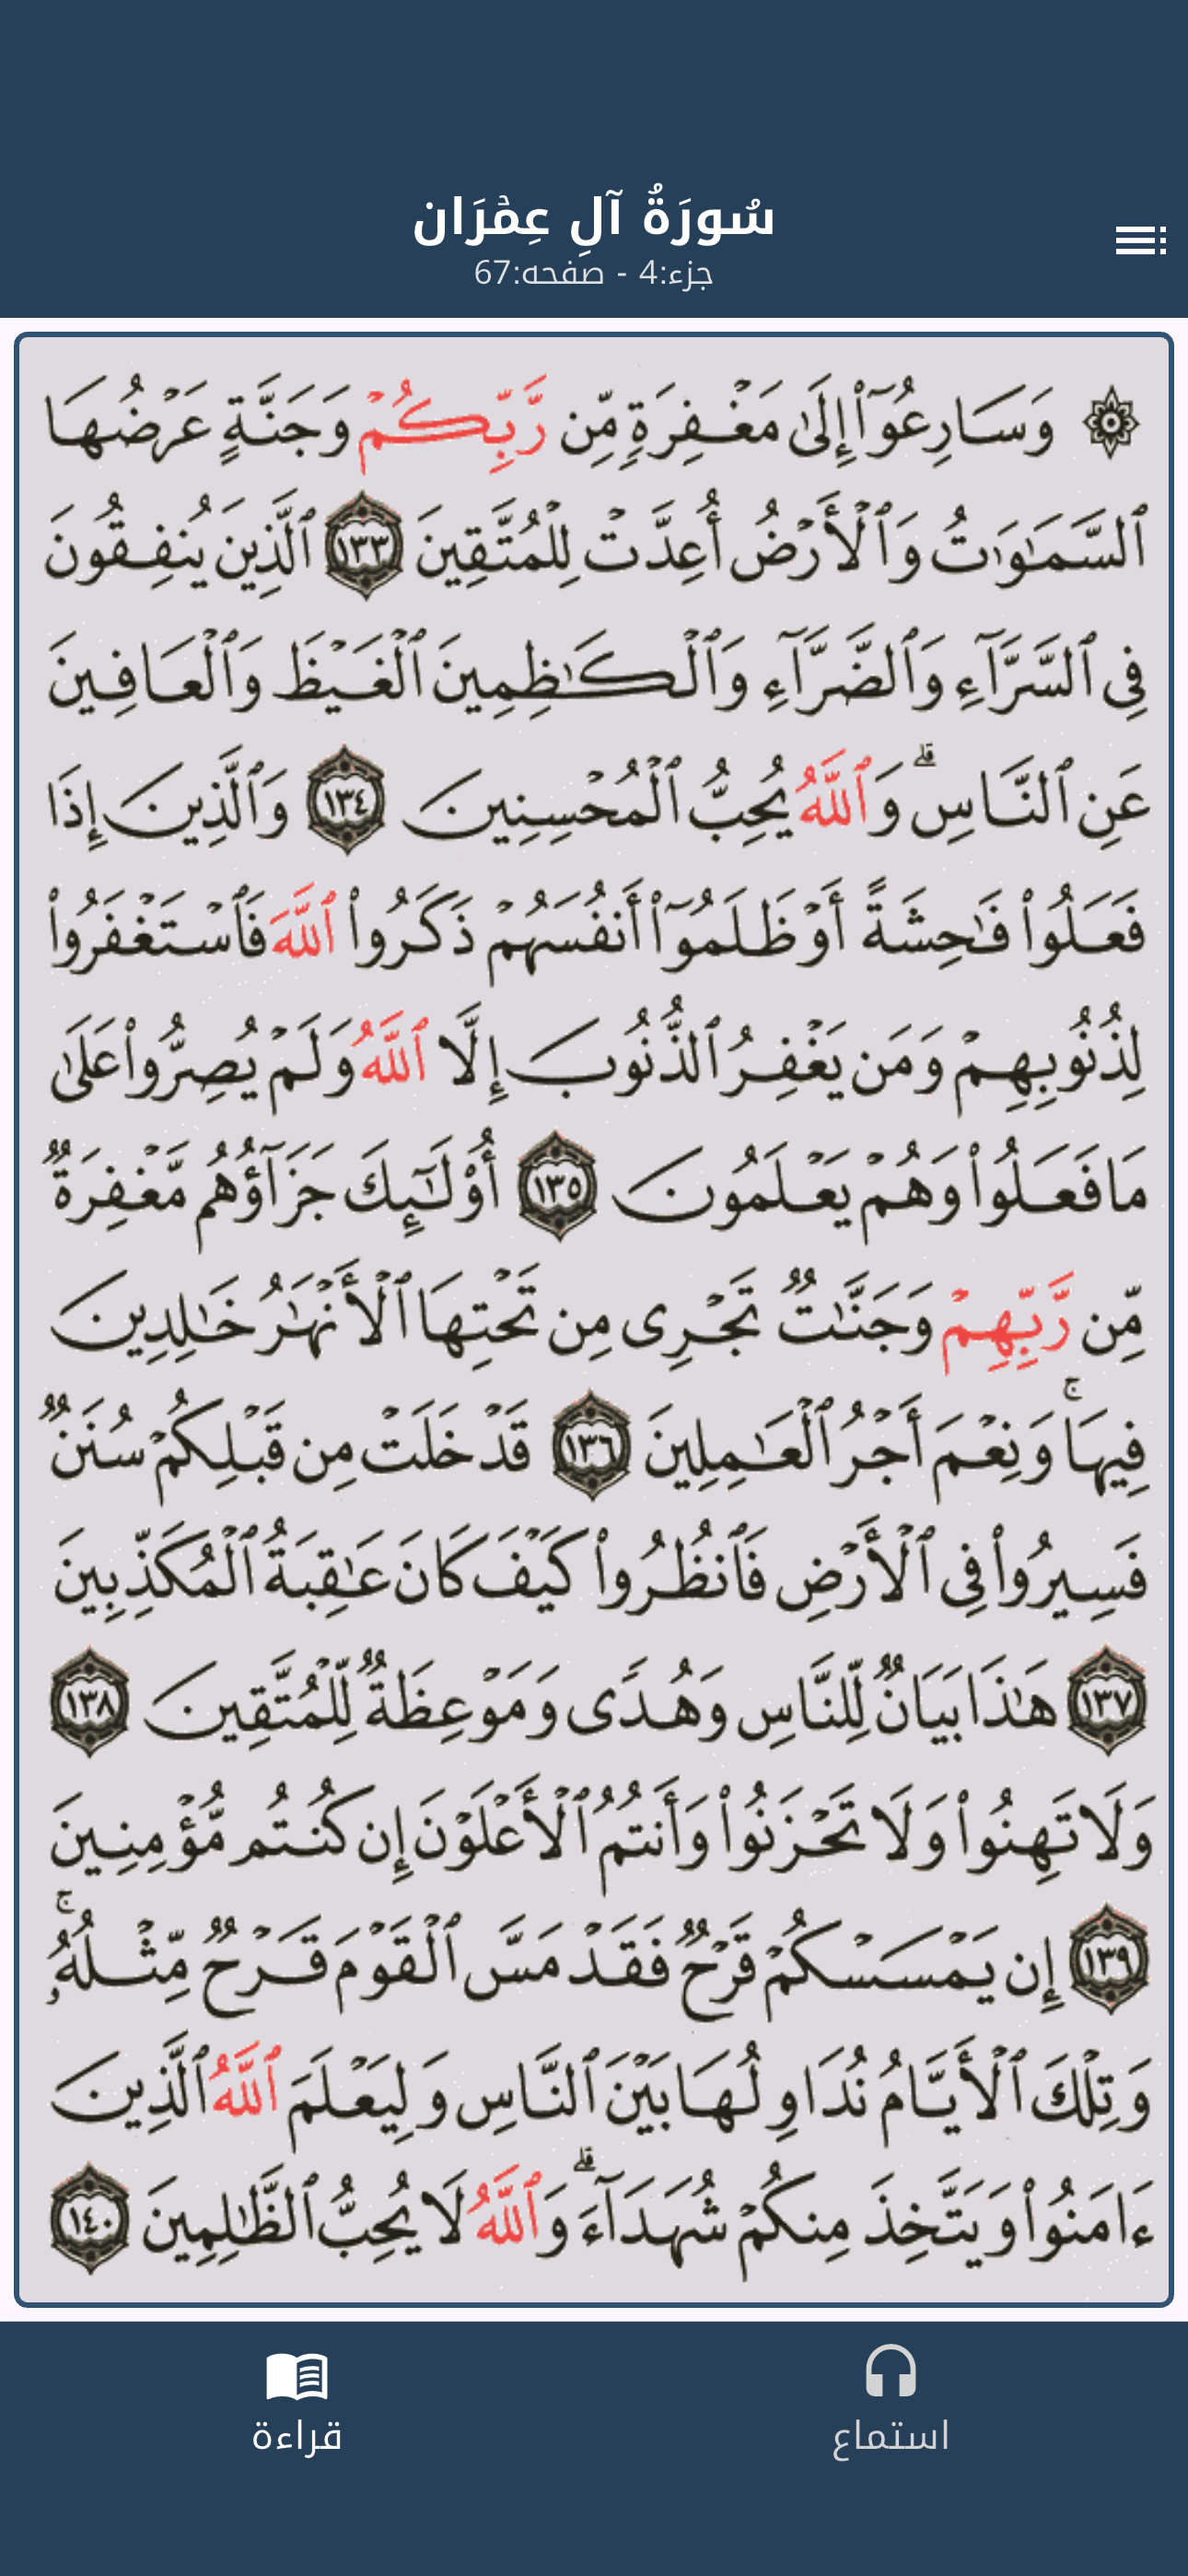 سُورَةُ آلِ عِمْرَان
جزء:4 - صفحه:67
۞ وَسَارِعُوٓا۟ إِلَىٰ مَغْفِرَةٍ مِّن رَّبِّكُمْ وَجَنَّةٍ عَرْضُهَا
ٱلسَّمَـٰوَٰتُ وَٱلْأَرْضُ أُعِدَّتْ لِلْمُتَّقِينَ ١٣٣ ٱلَّذِينَ يُنفِقُونَ
فِى ٱلسَّرَّآءِ وَٱلضَّرَّآءِ وَٱلْكَـٰظِمِينَ ٱلْغَيْظَ وَٱلْعَافِينَ
عَنِ ٱلنَّاسِ ۗ وَٱللَّهُ يُحِبُّ ٱلْمُحْسِنِينَ ١٣٤ وَٱلَّذِينَ إِذَا
فَعَلُوا۟ فَـٰحِشَةً أَوْ ظَلَمُوٓا۟ أَنفُسَهُمْ ذَكَرُوا۟ ٱللَّهَ فَٱسْتَغْفَرُوا۟
لِذُنُوبِهِمْ وَمَن يَغْفِرُ ٱلذُّنُوبَ إِلَّا ٱللَّهُ وَلَمْ يُصِرُّوا۟ عَلَىٰ
مَا فَعَلُوا۟ وَهُمْ يَعْلَمُونَ ١٣٥ أُو۟لَـٰٓئِكَ جَزَآؤُهُم مَّغْفِرَةٌ
مِّن رَّبِّهِمْ وَجَنَّـٰتٌ تَجْرِى مِن تَحْتِهَا ٱلْأَنْهَـٰرُ خَـٰلِدِينَ
فِيهَا ۚ وَنِعْمَ أَجْرُ ٱلْعَـٰمِلِينَ ١٣٦ قَدْ خَلَتْ مِن قَبْلِكُمْ سُنَنٌ
فَسِيرُوا۟ فِى ٱلْأَرْضِ فَٱنظُرُوا۟ كَيْفَ كَانَ عَـٰقِبَةُ ٱلْمُكَذِّبِينَ
١٣٧ هَـٰذَا بَيَانٌ لِّلنَّاسِ وَهُدًى وَمَوْعِظَةٌ لِّلْمُتَّقِينَ ١٣٨
وَلَا تَهِنُوا۟ وَلَا تَحْزَنُوا۟ وَأَنتُمُ ٱلْأَعْلَوْنَ إِن كُنتُم مُّؤْمِنِينَ
١٣٩ إِن يَمْسَسْكُمْ قَرْحٌ فَقَدْ مَسَّ ٱلْقَوْمَ قَرْحٌ مِّثْلُهُۥ ۚ
وَتِلْكَ ٱلْأَيَّامُ نُدَاوِلُهَا بَيْنَ ٱلنَّاسِ وَلِيَعْلَمَ ٱللَّهُ ٱلَّذِينَ
ءَامَنُوا۟ وَيَتَّخِذَ مِنكُمْ شُهَدَآءَ ۗ وَٱللَّهُ لَا يُحِبُّ ٱلظَّـٰلِمِينَ ١٤٠
استماع
قراءة